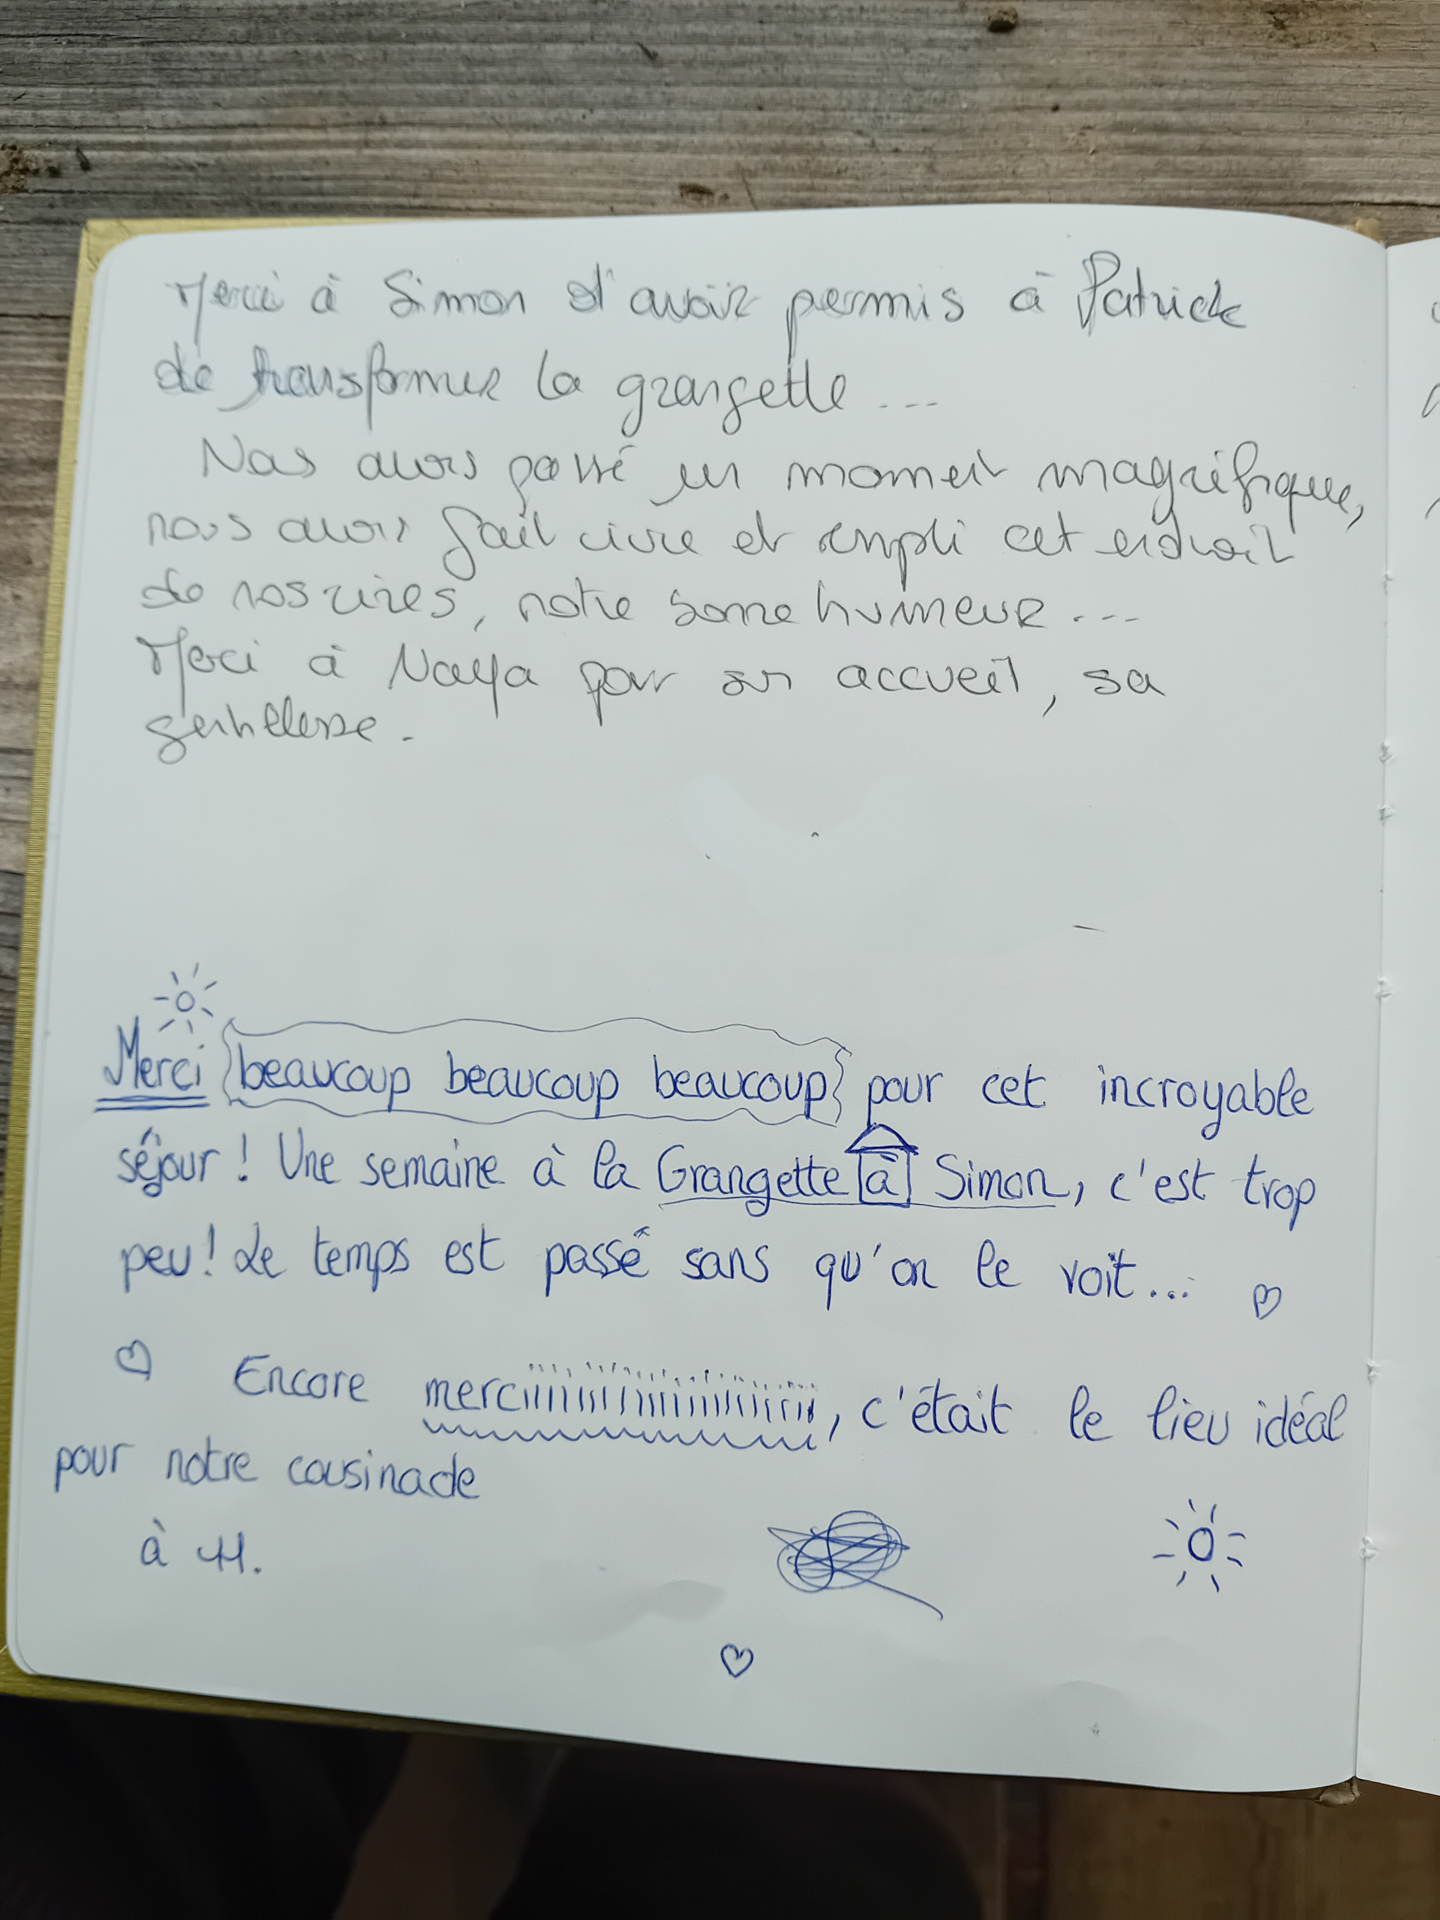 Merci à Simon d'avoir permis à Patrick
de transformer la grangette...
Nous avons passé un moment magnifique,
nous avons fait vivre et rempli cet endroit
de nos rires, notre bonne humeur...
Merci à Naya pour son accueil, sa
gentillesse.
Merci beaucoup beaucoup beaucoup pour cet incroyable
séjour! Une semaine à la Grangette à Simon, c'est trop
peu! Le temps est passé sans qu'on le voit...
Encore merciiiiiiiiiiiiiiiiiiiiiiii, c'était le lieu idéal
pour notre cousinade
à 11.